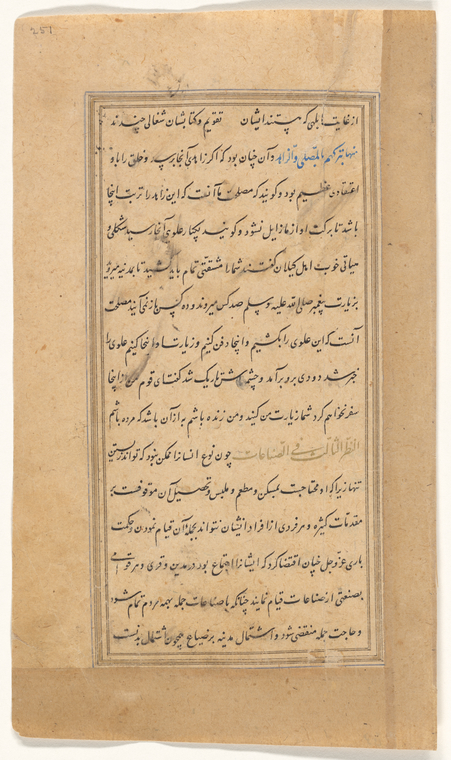 251
از غایت ابلهی که هستند ایشان تقویم و کتابشان شغالی چند ند
المصلی و الزاهد و آن چنان بود که اگر زاهدی آنجا برسد و خلق را باو
اعتقادی عظیم بود و گویند که مصلحت ما آنست که این زاهد را تربت اینجا
باشد تا برکت او از ما زایل نشود و گویند یکبار علوی آنجا رسید شکلی و
هیاتی خوب اهل گیلان گفتند شما را مشقتی تمام باید کشید تا بمدینه میروید
بزیارت پیغمبر صلی الله علیه وسلم صد کس میروند و ده کس باز نمی آیند مصلحت
آنست که این علوی را بکشیم و اینجا دفن کنیم و زیارت او اینجا کنیم علوی را
خبر شد دودی برو برآمد و چشمش تاریک شد گفت ای قوم من از اینجا
سفر نخواهم کرد شما زیارت من کنید و من زنده باشم به از آن باشد که مرده باشم
النظر الثالث فی الصناعات چون نوع انسان را ممکن نبود که تواند زیستن
تنها زیرا که او محتاجست بمسکن و مطعم و ملبس و تحصیل آن موقوفست بر
مقدمات کثیره و هر فردی از افراد ایشان نتواند بجمله آن قیام نمودن حکمت
باری عز و جل چنان اقتضا کرد که ایشان را اجتماع بود در مدین و قری و هر قومی
بصنعتی از صناعات قیام نمایند چنانکه با صناعات جمله بهمه مردم تمام شود
و حاجت جمله منقضی شود و اشتمال مدینه بر ضیاع همچون اشتمال بدنست